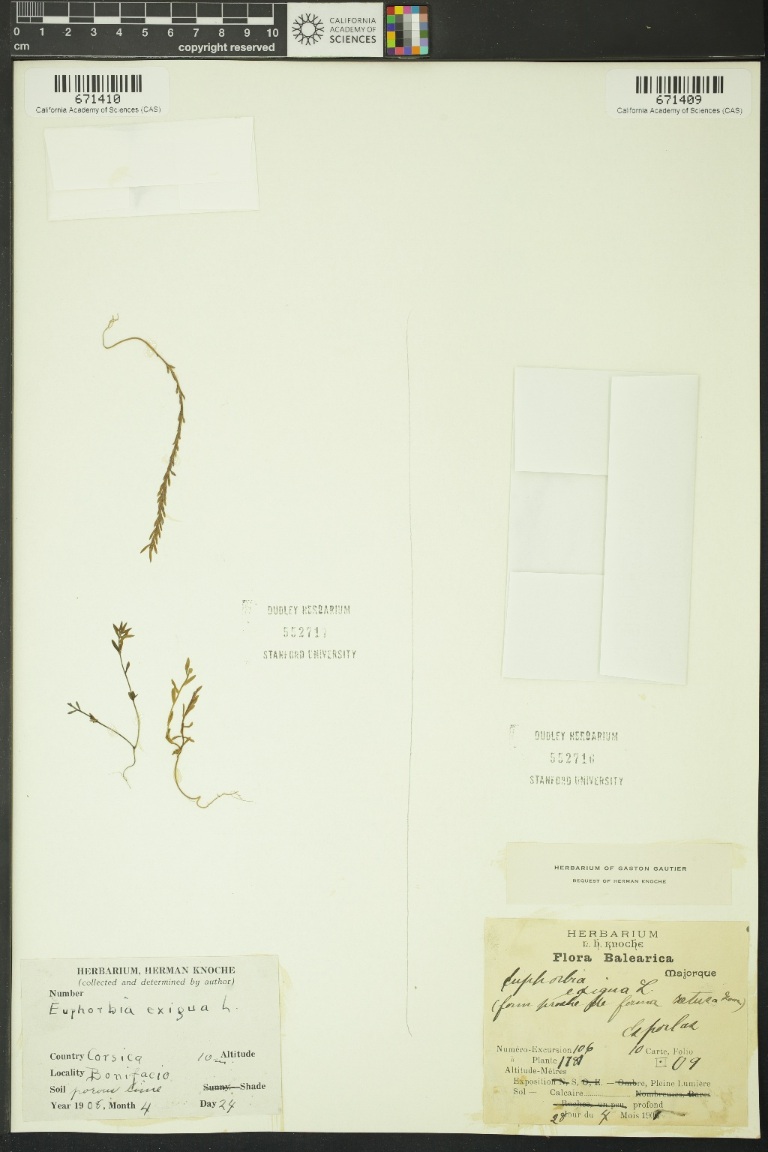 0 1 2 3 4 5 6 7 8 9 10
cm
copyright reserved
CALIFORNIA
ACADEMY OF
SCIENCES
671410
California Academy of Sciences (CAS)
671409
California Academy of Sciences (CAS)
DUDLEY HERBARIUM
552717
STANFORD UNIVERSITY
DUDLEY HERBARIUM
552716
STANFORD UNIVERSITY
HERBARIUM OF GASTON GAUTIER
BEQUEST OF HERMAN KNOCHE
HERBARIUM, HERMAN KNOCHE
(collected and determined by author)
Number
Euphorbia exigua L.
Country Corsica 10 m. Altitude
Locality Bonifacio
Soil porous lime Sunny—Shade
Year 1906, Month 4 Day 24
HERBARIUM
E. H. KNOCHE
Flora Balearica
Majorque
Euphorbia
exigua L.
(form proche de forma retusa
Es porlas
Numéro-Excursion 106 10 Carte, Folio
à Plante 09
Altitude-Mètres
Exposition N. S. O. E. — Ombre, Pleine Lumière
Sol — Calcaire Nombreuses, Rares
Roches, un peu, profond
Jour du 4 Mois 190